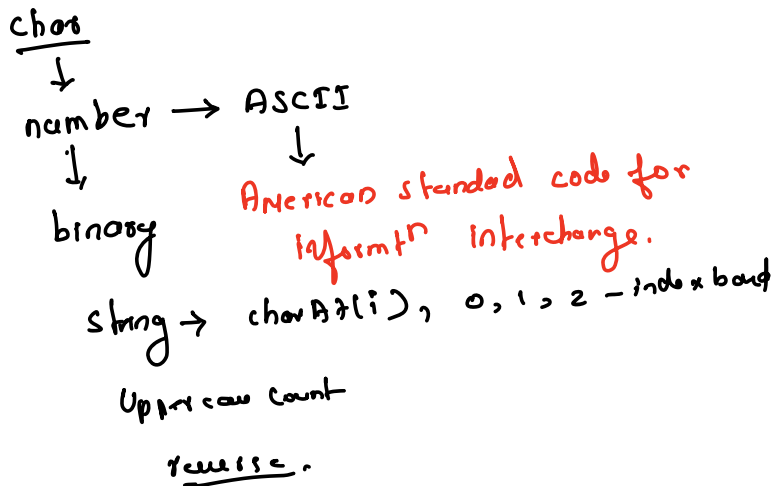 char
↓
number → ASCII
↓ ↓
American standad code for
binary
informtⁿ interchange.
string → charAt(i), 0, 1, 2 - index based
Uppercase Count
reverse.